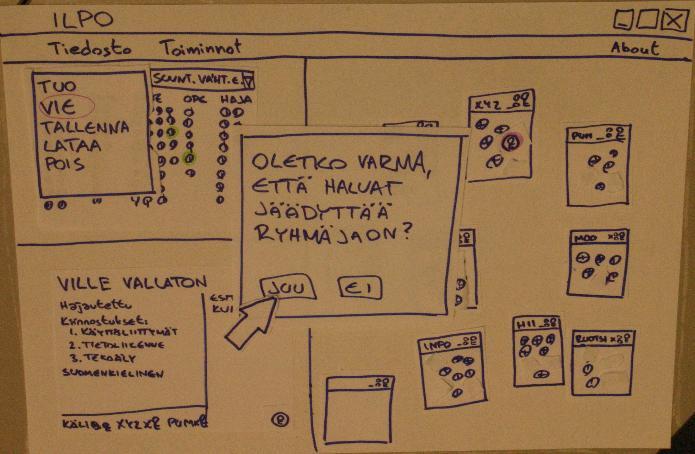 ILPO
Tiedosto Toiminnot About
TUO
VIE
TALLENNA
LATAA
POIS
SUUNT. VAIHT. E.
OPE HAJA
OLETKO VARMA,
ETTÄ HALUAT
JÄÄDYTTÄÄ
RYHMÄJAON?
JUU EI
XYZ
PUM
MOD
INFO
HII
RUOTSI
VILLE VALLATON
Hajautettu
Kiinnostukset:
1. KÄYTTÖLIITTYMÄT
2. TIETOLIIKENNE
3. TEKOÄLY
SUOMENKIELINEN
ESM
KUI